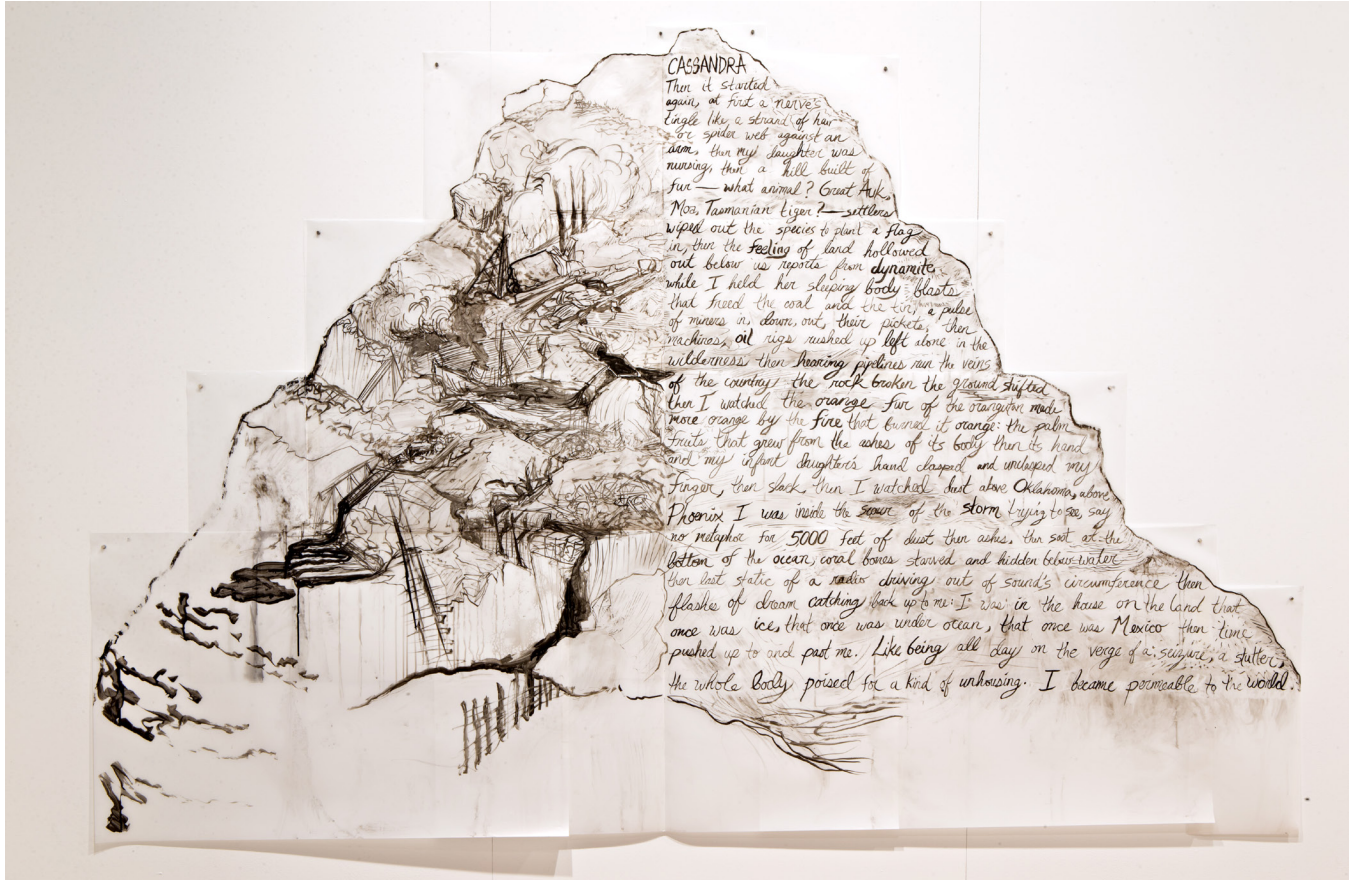 CASSANDRA
Then it started
again, at first a nerve's
tingle like a strand of hair
or spider web against an
arm, then my daughter was
nursing, then a hill built of
fur — what animal? Great Auk,
Moa, Tasmanian tiger? — settlers
wiped out the species to plant a flag
in, then the feeling of land hollowed
out below us reports from dynamite
while I held her sleeping body blasts
that freed the coal and the tin, a pulse
of miners in, down, out, their pickets, then
machines, oil rigs rushed up left alone in the
wilderness then hearing pipelines run the veins
of the country the rock broken the ground shifted
then I watched the orange fur of the orangutan made
more orange by the fire that burned it orange: the palm
fruits that grew from the ashes of its body then its hand
and my infant daughter's hand clasped and unclasped my
finger, then slack, then I watched dust above Oklahoma, above
Phoenix I was inside the scour of the storm trying to see, say
no metaphor for 5000 feet of dust, then ashes, then soot at the
bottom of the ocean, coral bones starved and hidden below-water
then last static of a radio driving out of sound's circumference then
flashes of dream catching back up to me: I was in the house on the land that
once was ice, that once was under ocean, that once was Mexico then time
pushed up to and past me. Like being all day on the verge of a seizure, a stutter,
the whole body poised for a kind of unhousing. I became permeable to the world.